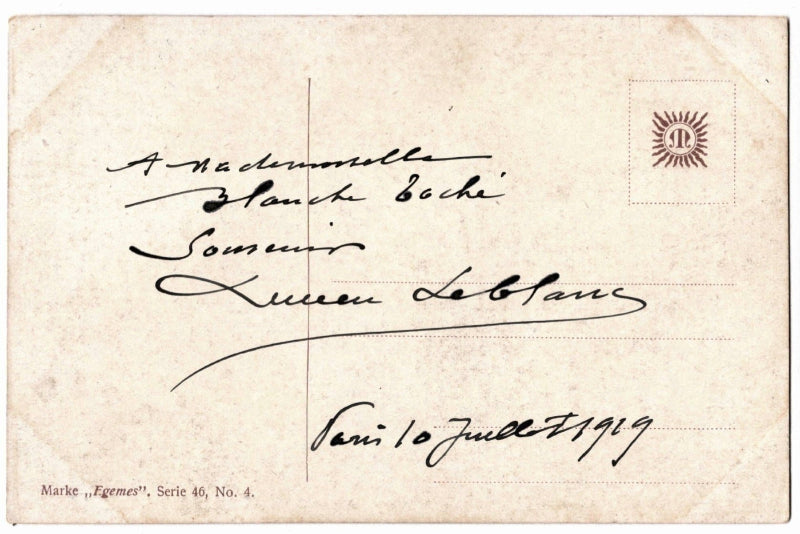 A Mademoiselle
Blanche Taché
Souvenir
Lucien Leblanc
Paris 10 Juillet 1919
Marke „Egemes". Serie 46, No. 4.